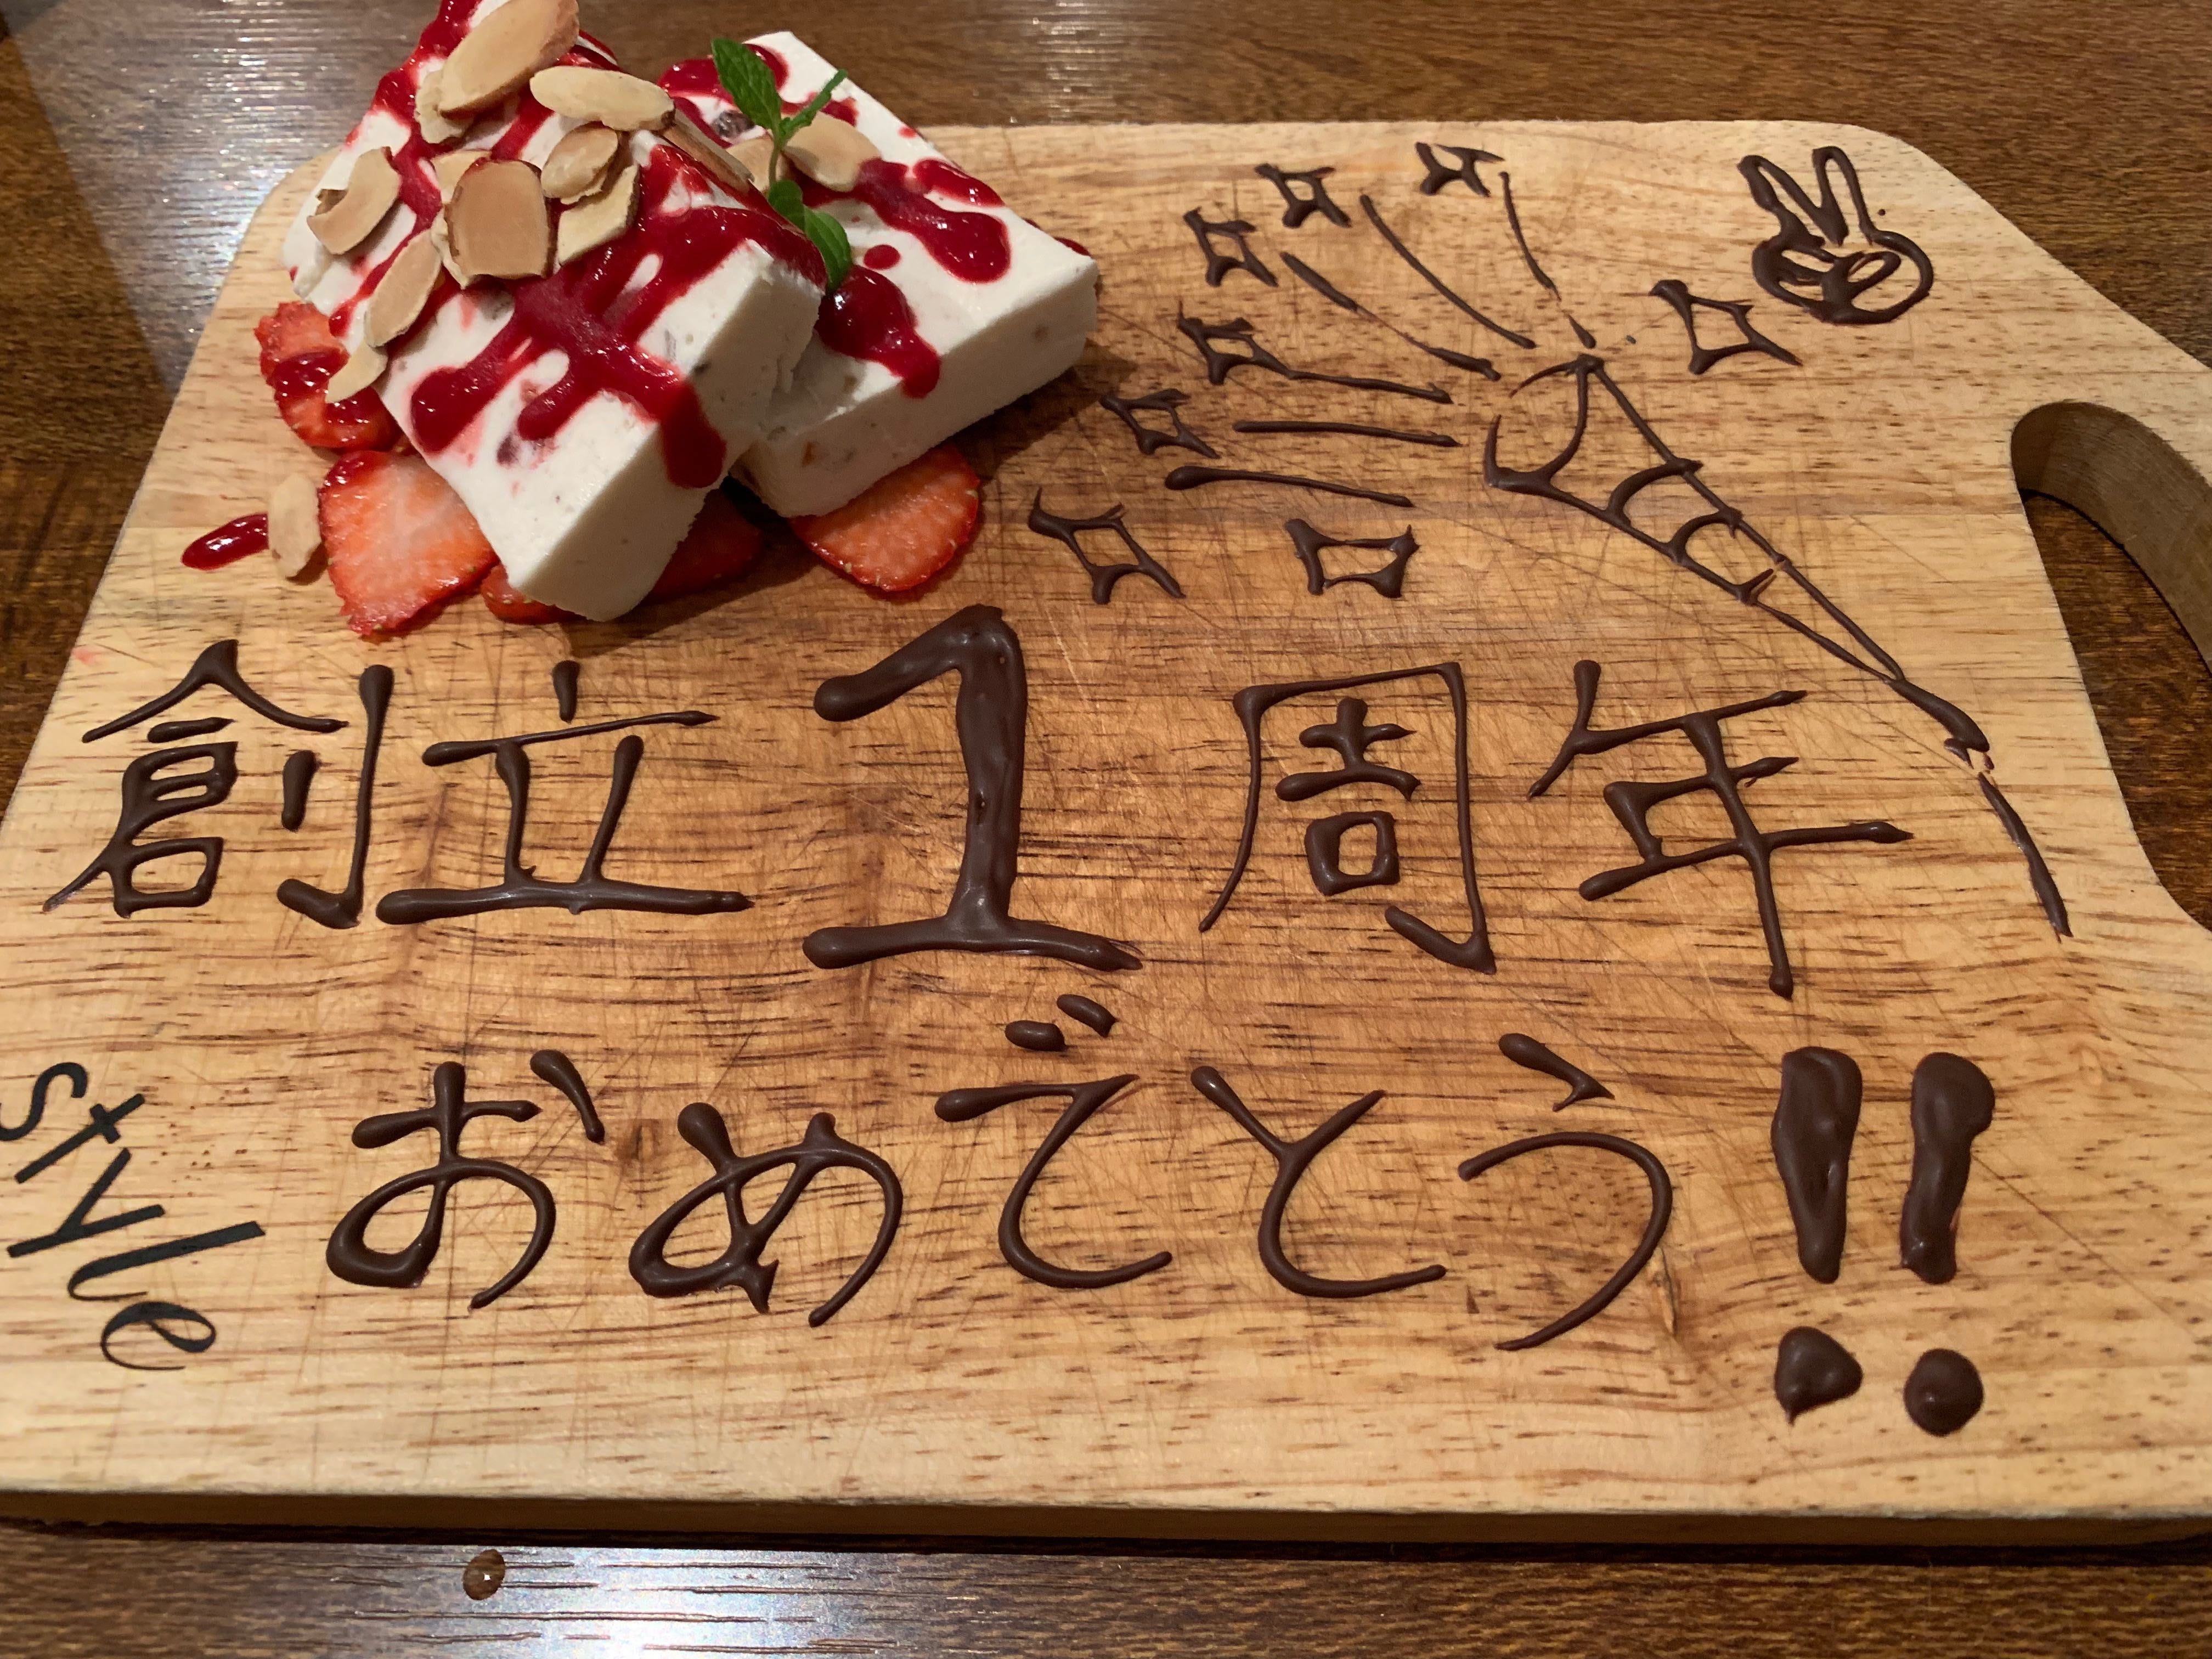 創立1周年
おめでとう!!
style